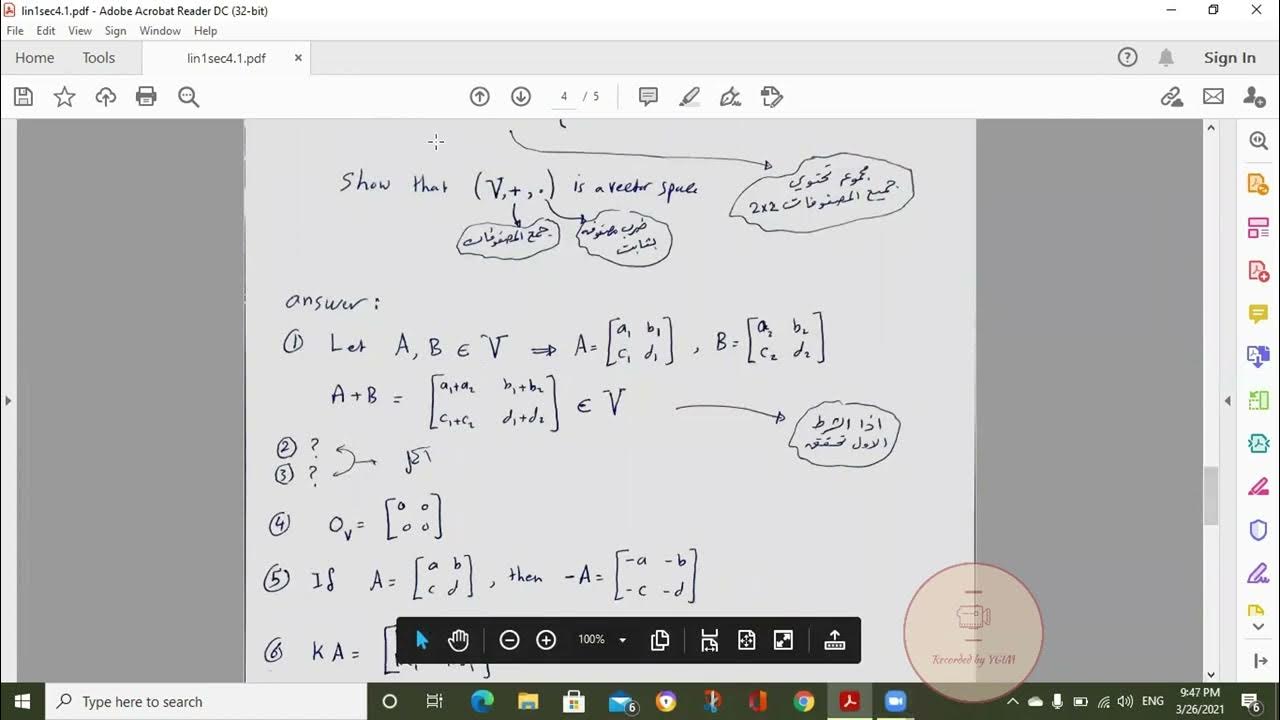 lin1sec4.1.pdf - Adobe Acrobat Reader DC (32-bit)
File Edit View Sign Window Help
Home Tools lin1sec4.1.pdf Sign In
4 / 5
Show that (V, +, .) is a vector space
مجموع تحتوي
جميع المصفوفات 2x2
جمع المصفوفات
ضرب مصفوفه
بثابت
answer:
① Let A, B ∈ V ⇒ A = [a₁ b₁; c₁ d₁], B = [a₂ b₂; c₂ d₂]
A+B = [a₁+a₂ b₁+b₂; c₁+c₂ d₁+d₂] ∈ V
اذا الشرط
الاول تحقق
② ?
③ ?
④ 0ᵥ = [0 0; 0 0]
⑤ If A = [a b; c d], then -A = [-a -b; -c -d]
⑥ KA =
100%
Recorded by YGM
Type here to search
6
ENG
9:47 PM
3/26/2021
6